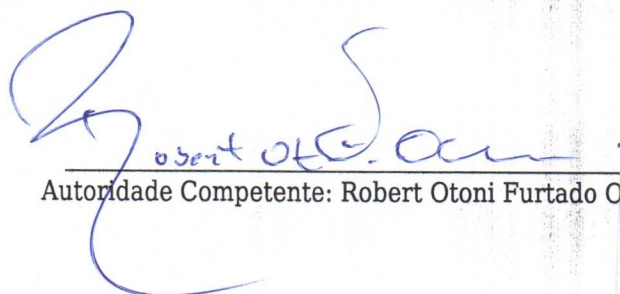 Robert
Autoridade Competente: Robert Otoni Furtado O